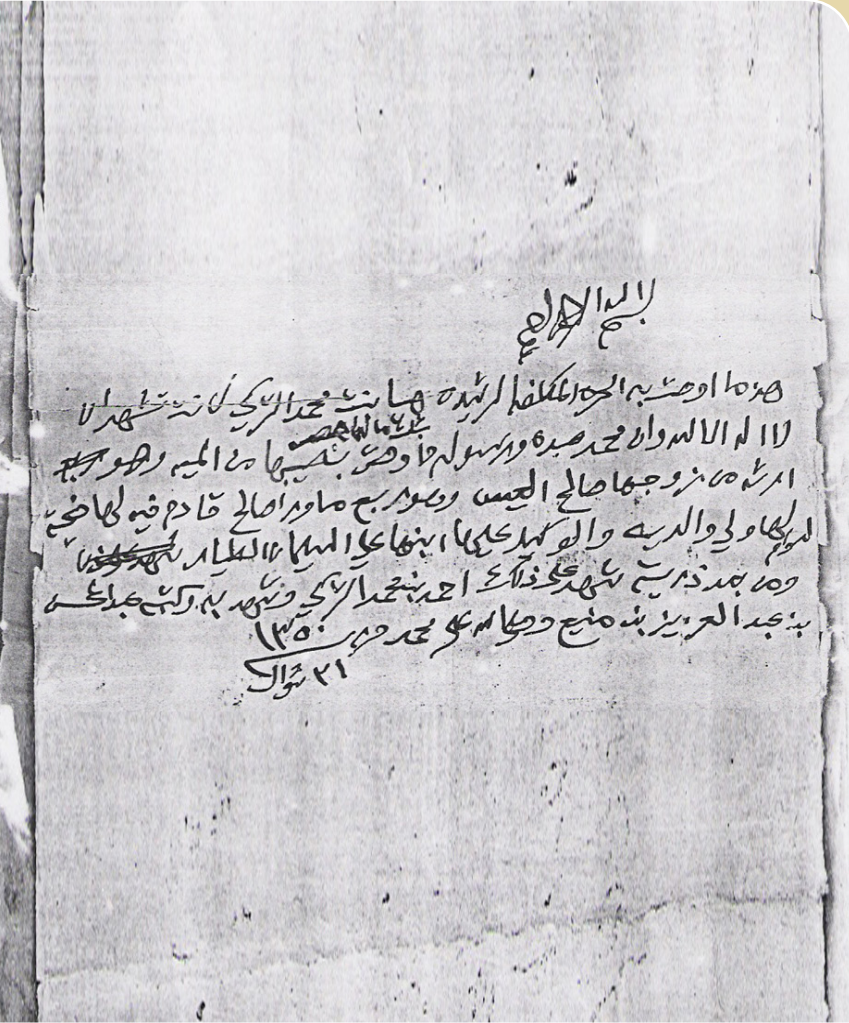 بسم الله الرحمن الرحيم
هذه ما اوصت به الحره المكلفه الرشيده بنت محمد التركي تشهد ان لا
لا اله الا الله وان محمد عبده ورسوله واوصت بنصيبها من الميه وهو
ارثه من زوجها صالح العيسى وهو ربع ماورا صالح قادم فيه لها ضحية
لها ولوالديه والوكيل عليها ابنها علي السليمان الطيار
ومن بعد ذريته شهد على ذلك احمد بن محمد التركي وشهد به وكتبه عبدالمحسن
بن عبد العزيز بن منيع وصلى الله على محمد
١٣٥٠
٢١ شوال